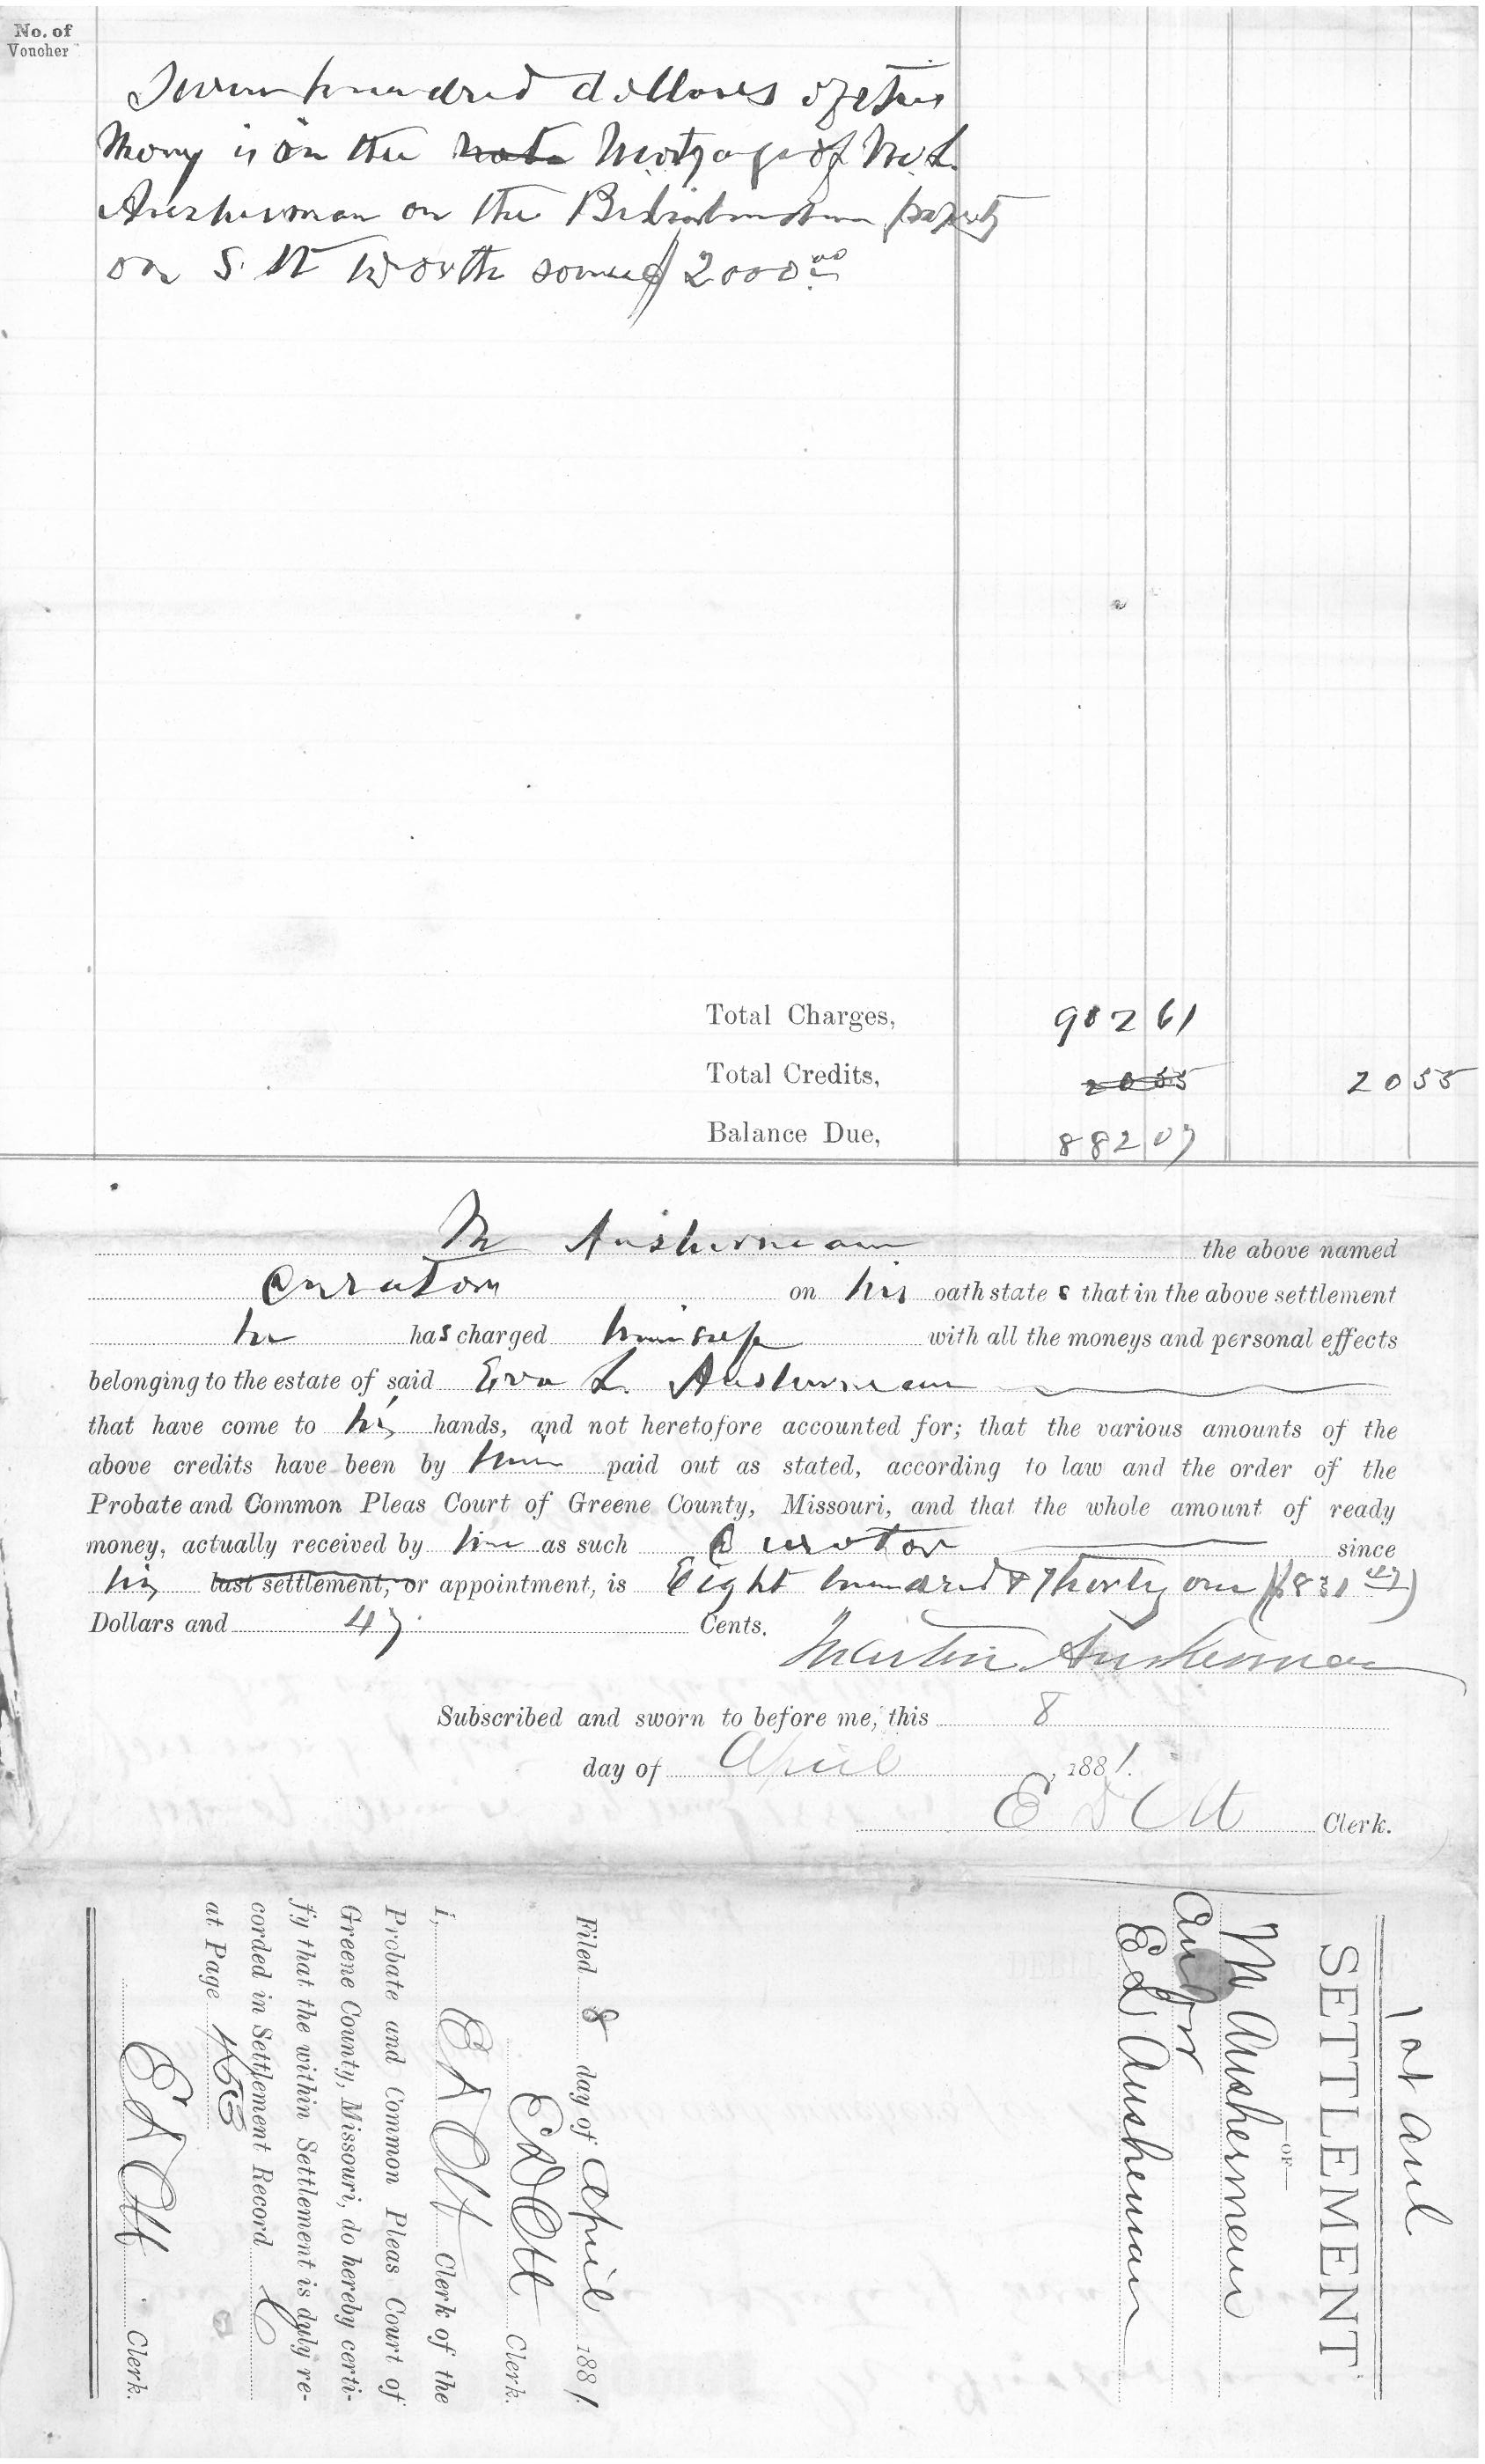 No. of
Voucher
Seven hundred dollars of this
Mony is on the note Mortgage of M. L.
Ausherman on the property
on S. St worth some $2000.00
Total Charges, 902 61
Total Credits, 20 55 20 55
Balance Due, 882 07
M Ausherman the above named
Curator on his oath states that in the above settlement
he has charged himself with all the moneys and personal effects
belonging to the estate of said Eva L. Ausherman
that have come to his hands, and not heretofore accounted for; that the various amounts of the
above credits have been by him paid out as stated, according to law and the order of the
Probate and Common Pleas Court of Greene County, Missouri, and that the whole amount of ready
money, actually received by him as such Curator since
his last settlement, or appointment, is Eight hundred & Thirty one ($831 47)
Dollars and 47 Cents.
Martin Ausherman
Subscribed and sworn to before me, this 8
day of April, 1881.
E D Ott Clerk.
1st Anl
SETTLEMENT
—OF—
M Ausherman
E L Ausherman
Filed 8 day of April 1881.
E D Ott Clerk.
I, E D Ott Clerk of the
Probate and Common Pleas Court of
Greene County, Missouri, do hereby certi-
fy that the within Settlement is duly re-
corded in Settlement Record C
at Page
E D Ott Clerk.